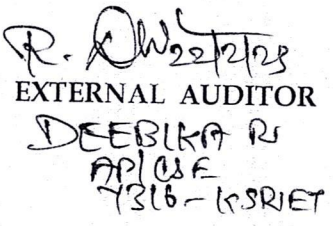 R. 22/2/25
EXTERNAL AUDITOR
DEEBIKA R
AP/CSE
7316 - KSRIET